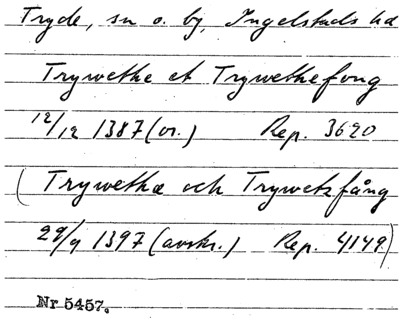 Tryde, sn o. by, Ingelstads hd
Trywethe et Trywethefong
12/12 1387 (or.) Rep. 3620
(Trywethæ och Trywetzfång
29/9 1397 (avskr.) Rep. 4149)
Nr 5457.